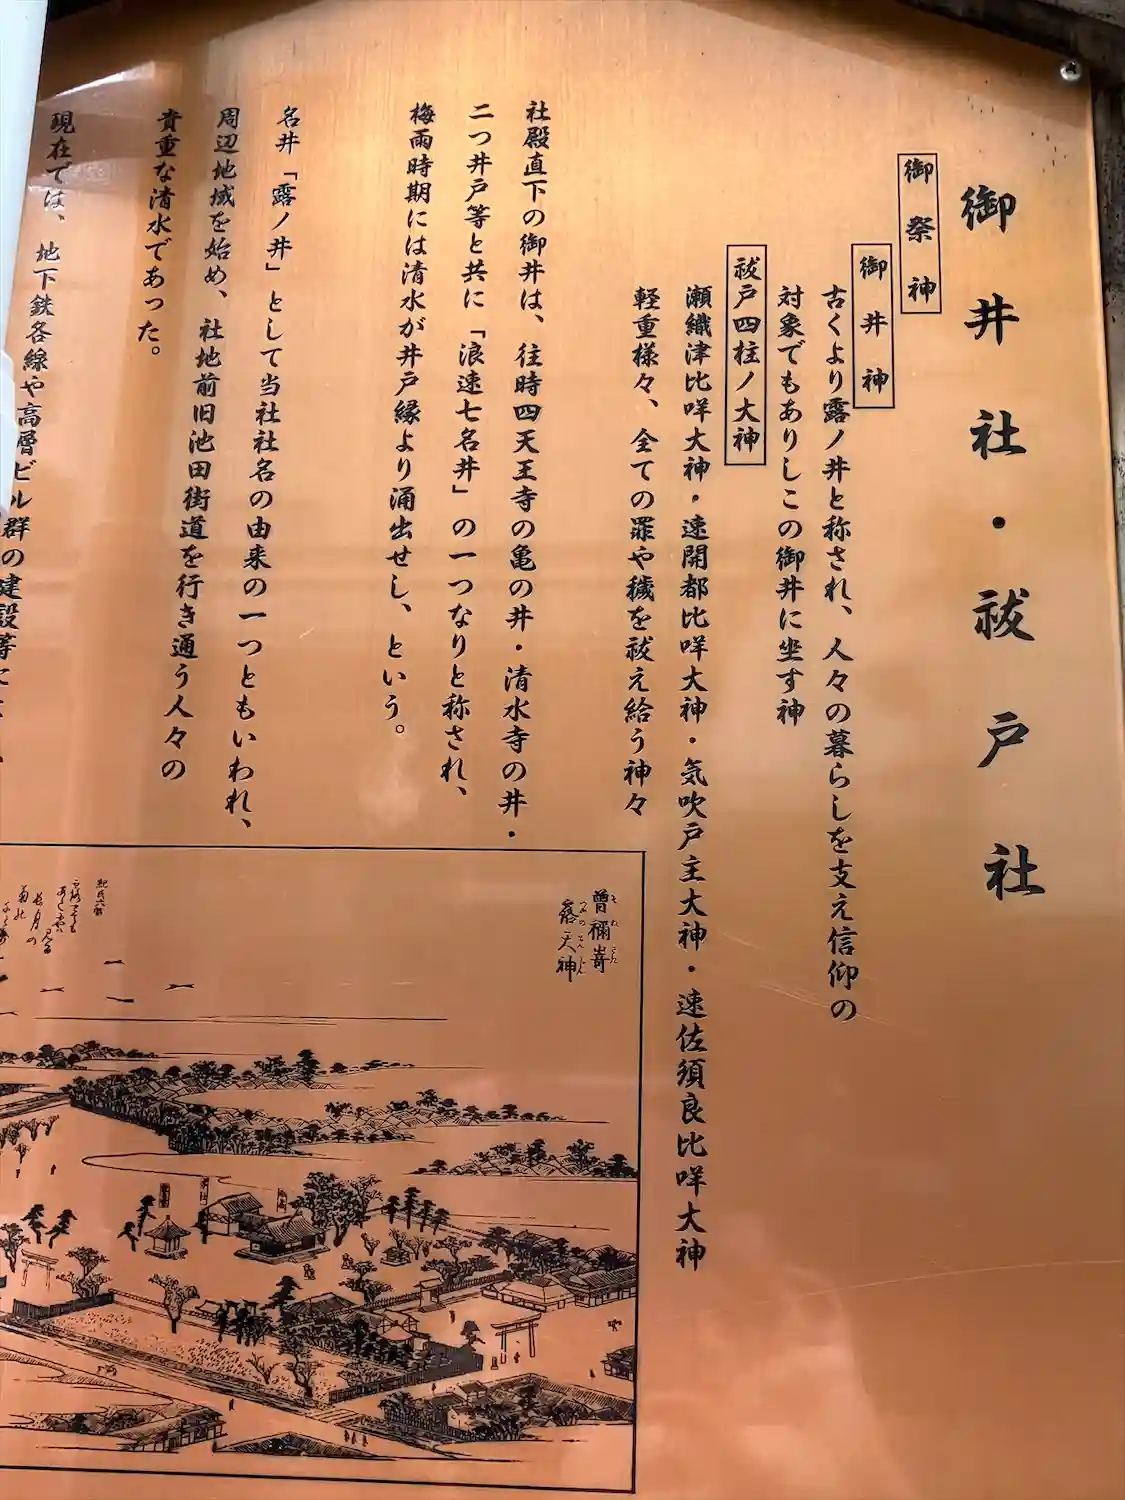 御井社・祓戸社
御祭神
御井神
古くより露ノ井と称され、人々の暮らしを支え信仰の
対象でもありしこの御井に坐す神
祓戸四柱ノ大神
瀬織津比咩大神・速開都比咩大神・気吹戸主大神・速佐須良比咩大神
軽重様々、全ての罪や穢を祓え給う神々
社殿直下の御井は、往時四天王寺の亀の井・清水寺の井・
二つ井戸等と共に「浪速七名井」の一つなりと称され、
梅雨時期には清水が井戸縁より涌出せし、という。
名井「露ノ井」として当社社名の由来の一つともいわれ、
周辺地域を始め、社地前旧池田街道を行き通う人々の
貴重な清水であった。
現在では、地下鉄各線や高層ビル群の建設等に
曽禰嵜
露天神